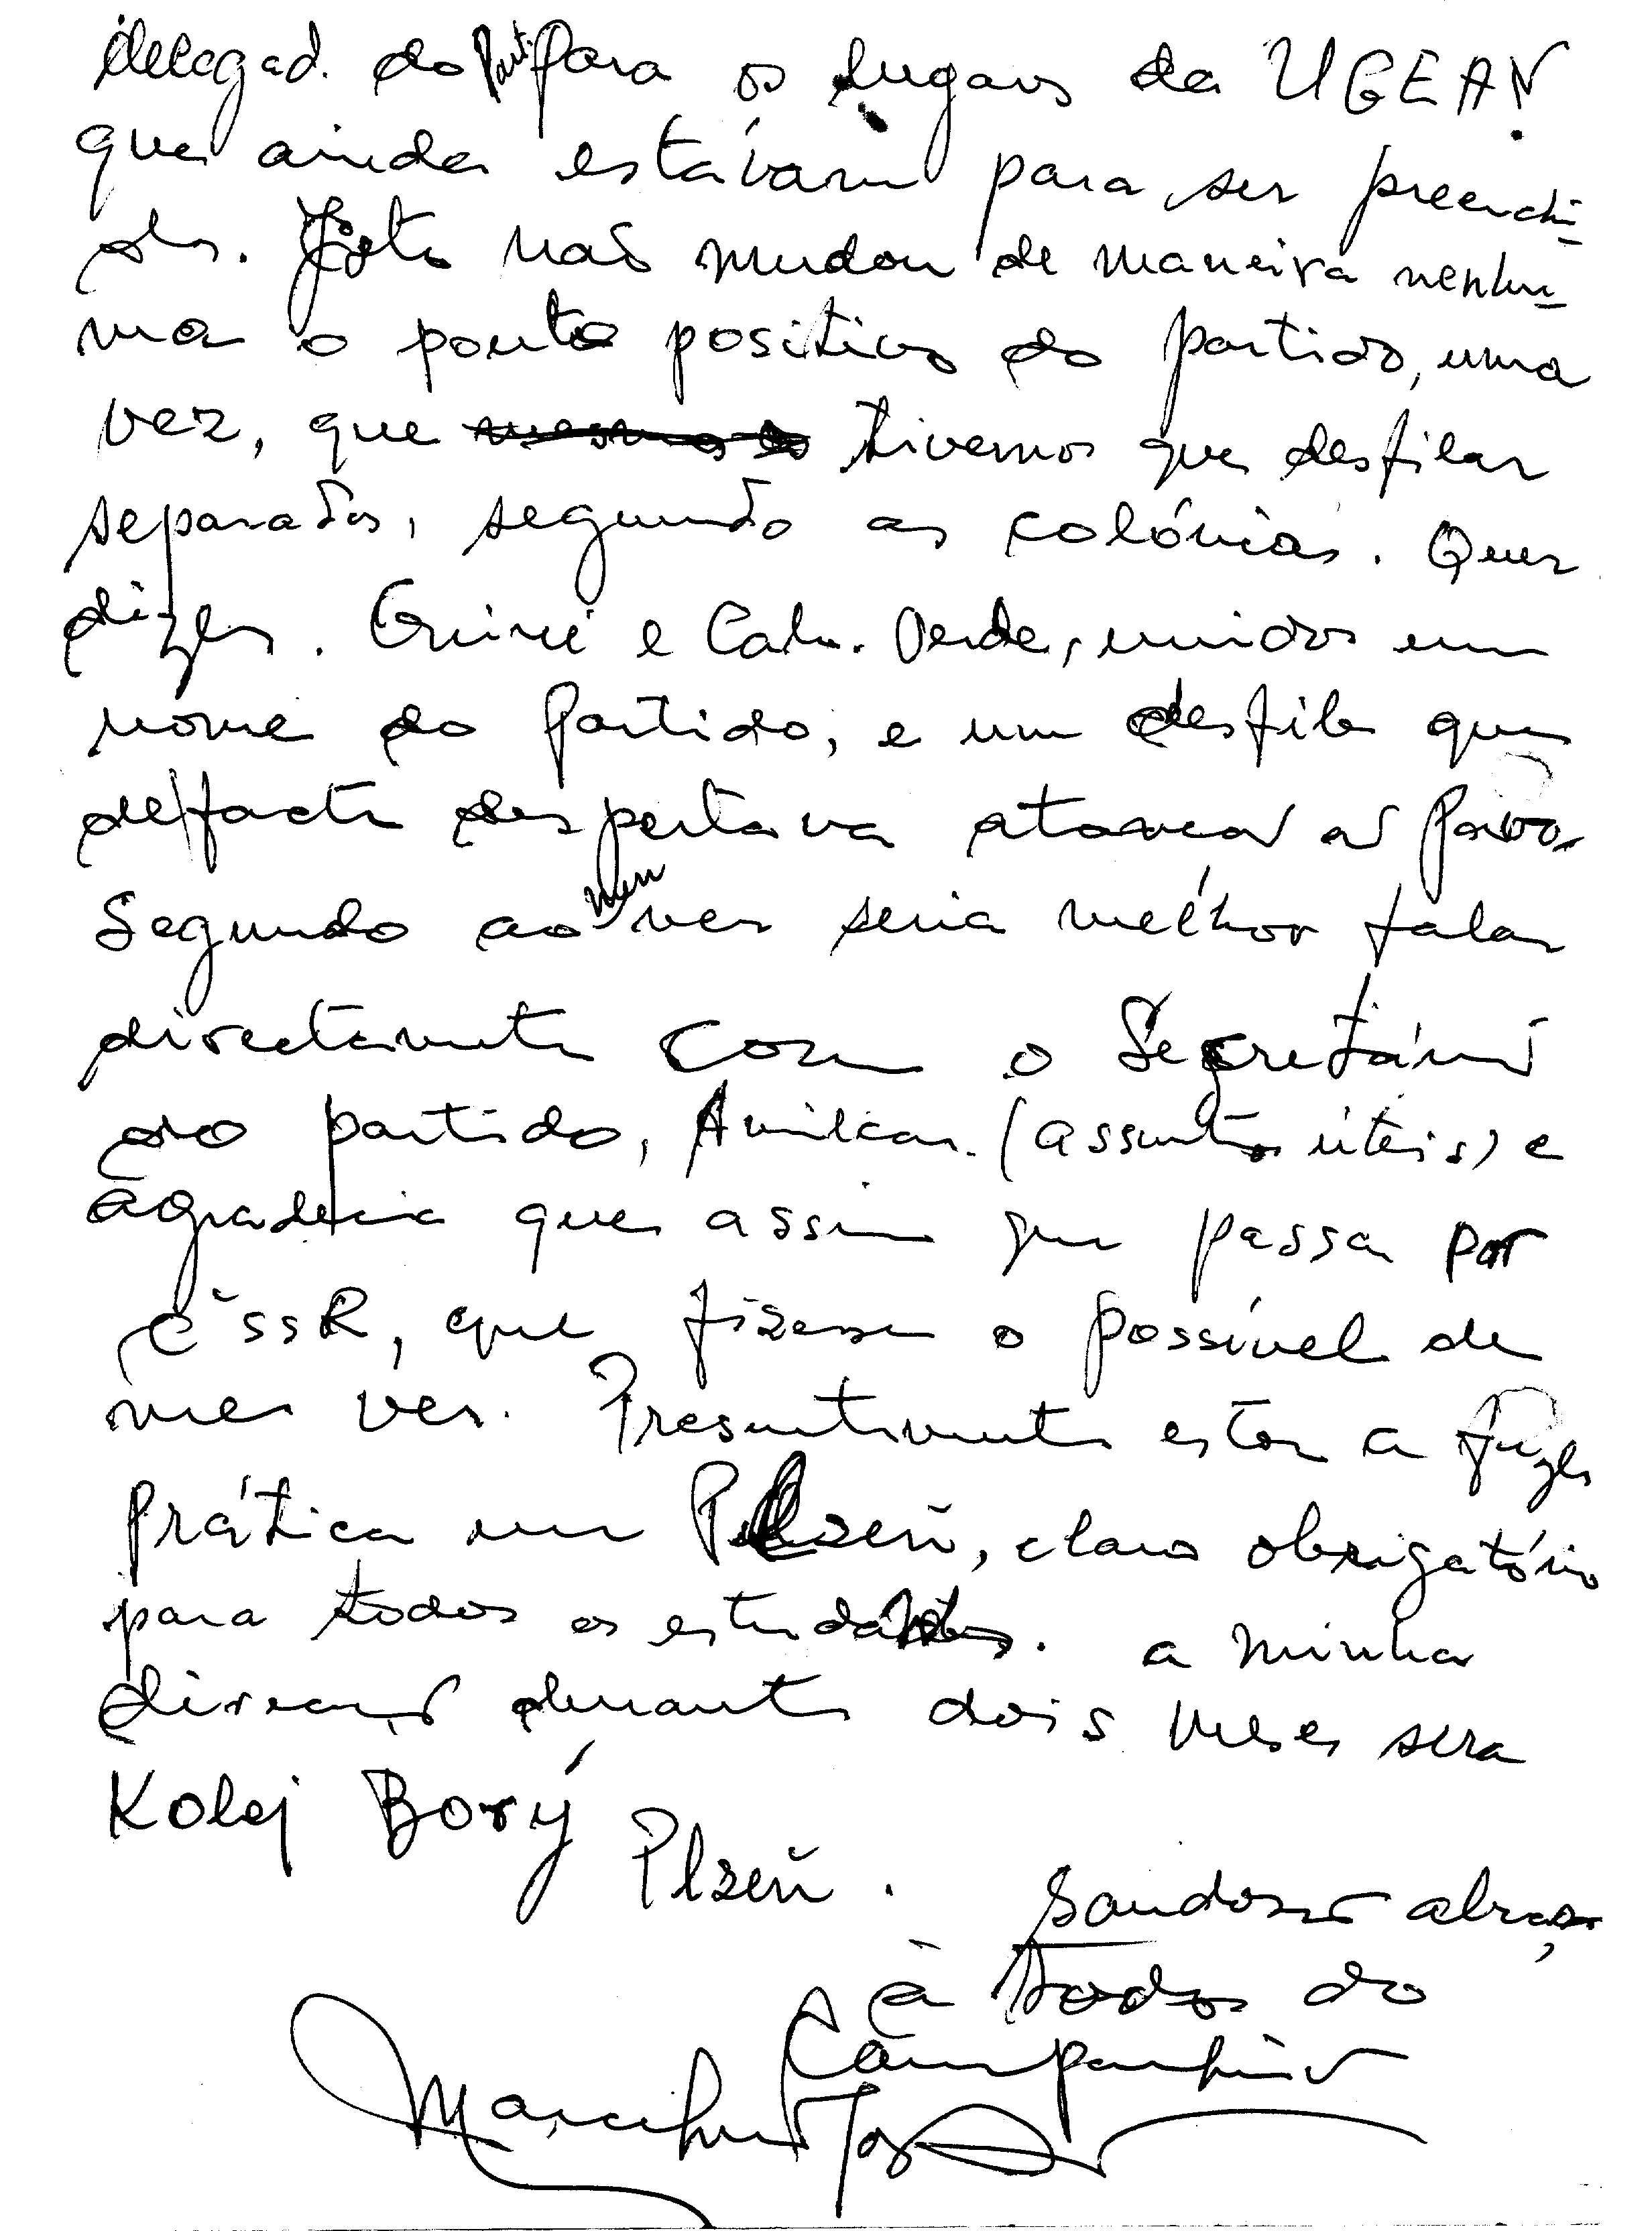 delegad. do Part. para os lugares da UGEAN
que ainda estávam para ser preenchi-
dos. Isto naõ mudou de maneira nenhu-
ma o ponto positivo do partido, uma
vez, que tivemos que desfilar
separados, segundo as colónias. Quer
dizer. Guiné e Cabo. Verde, unidos em
nome do Partido, e um desfile que
de facto despertava atençaõ ao Povo.
Segundo ao meu ver seria melhor falar
directamente com o Secretário
do partido, Amilcar. (assuntos úteis) e
agradecia que assim que passar por
ČSSR, que fizesse o possível de
me ver. Presentemente estou a fazer
prática em Plzeň, claro obrigatório
para todos os estudantes. a minha
direcçaõ durante dois meses sera
Kolej Borý
Plzeň.
Saudoso abraço,
à todos do
Companheiro